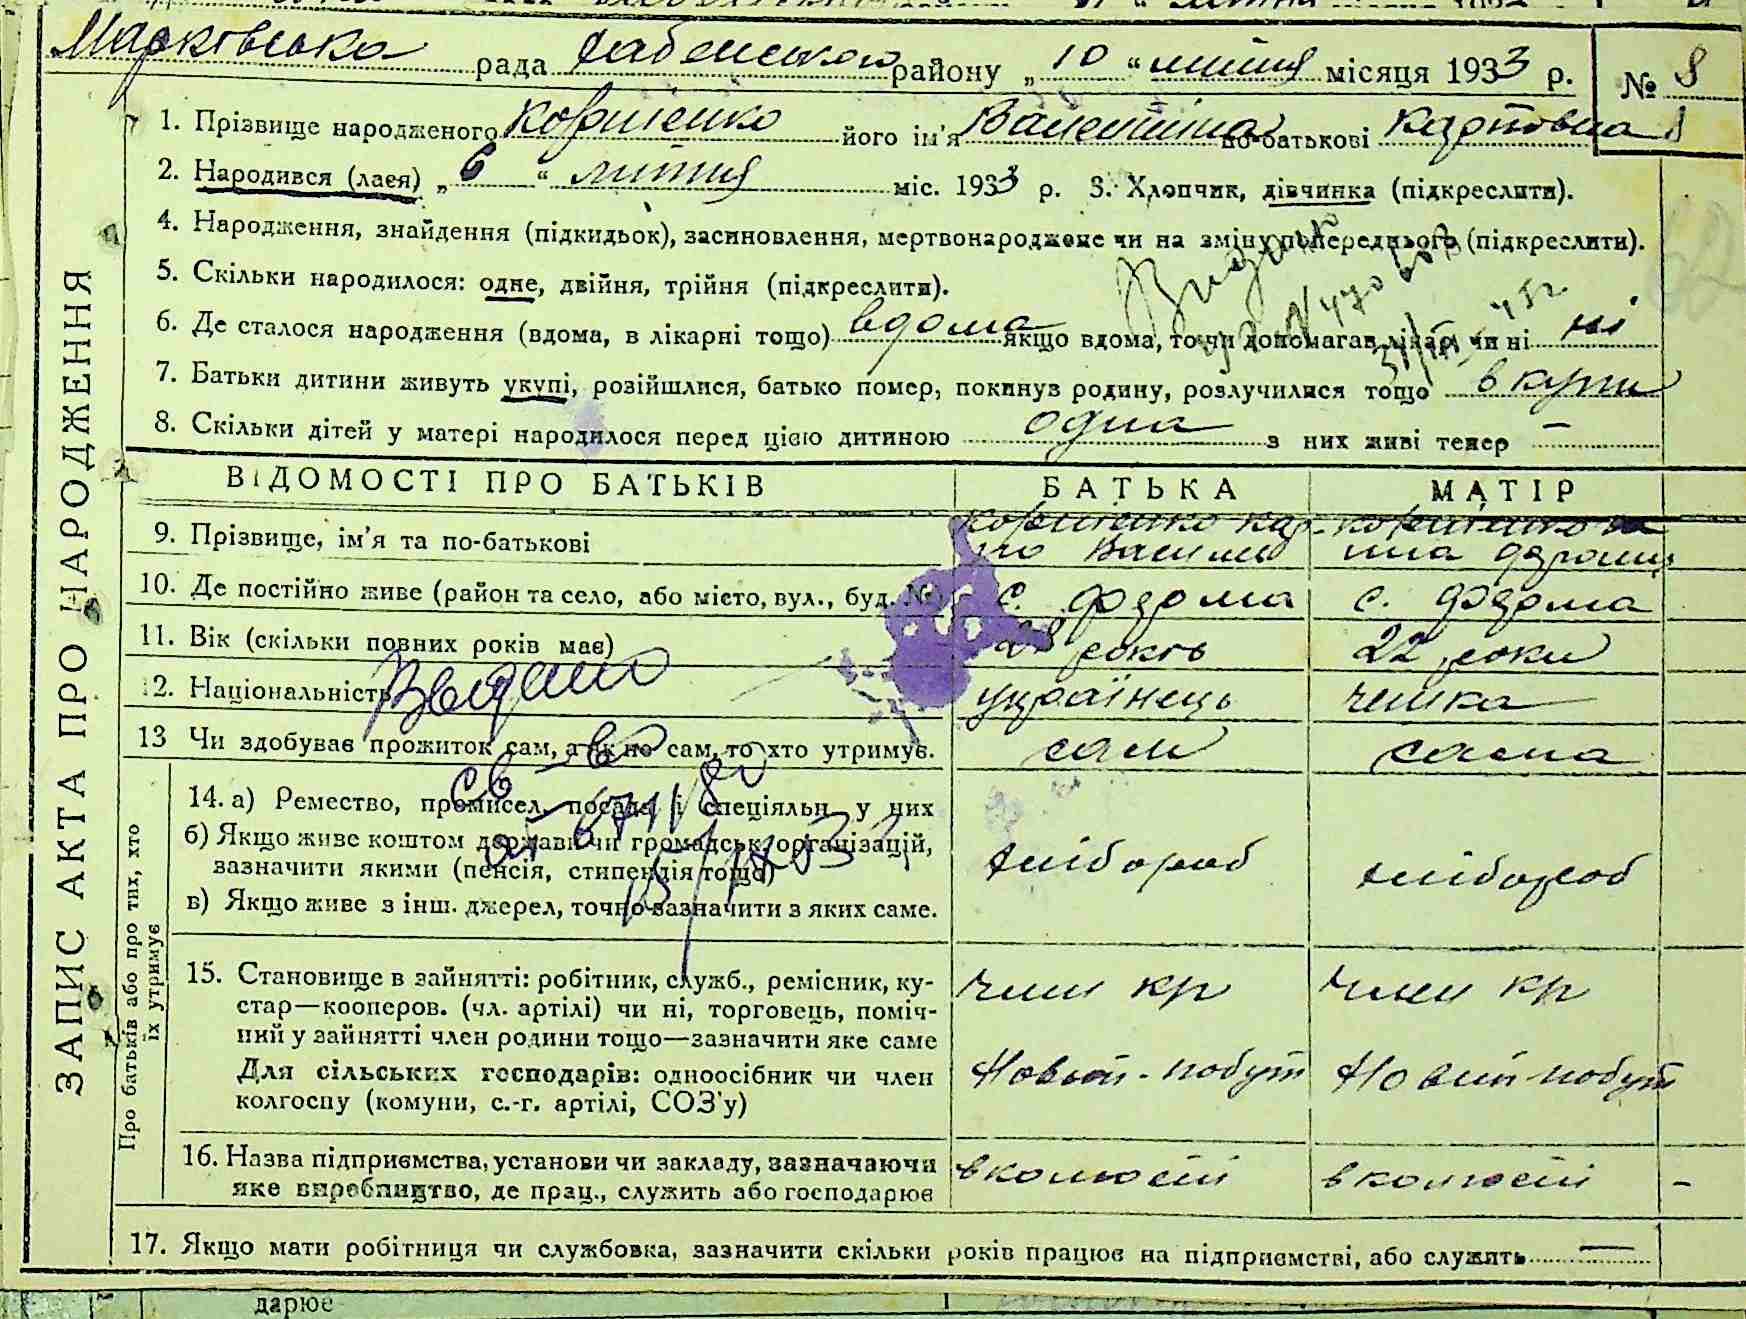 Марковська рада Хабенського району „10“ липня місяця 1933 р. № 8
1. Прізвище народженого Корнієнко його ім'я Валентина по-батькові Карповна
2. Народився (лася) „6“ липня міс. 1933 р. 3. Хлопчик, дівчинка (підкреслити).
4. Народження, знайдення (підкидьок), засиновлення, мертвонароджене чи на зміну попереднього (підкреслити).
5. Скільки народилося: одне, двійня, трійня (підкреслити).
6. Де сталося народження (вдома, в лікарні тощо) вдома якщо вдома, то чи допомагав лікар чи ні ні
7. Батьки дитини живуть укупі, розійшлися, батько помер, покинув родину, розлучилися тощо вкупи
8. Скільки дітей у матері народилося перед цією дитиною одна з них живі тепер —
ВІДОМОСТІ ПРО БАТЬКІВ БАТЬКА МАТІР
9. Прізвище, ім'я та по-батькові Корнієнко Кар- Корнієнко
10. Де постійно живе (район та село, або місто, вул., буд. №) с. Ферма с. Ферма
11. Вік (скільки повних років має) 28 років 22 роки
12. Національність українець чешка
13 Чи здобував прожиток сам, а як не сам, то хто утримує. сам сама
14. а) Ремество, промисел, посада і спеціяльн у них
б) Якщо живе коштом держави чи громадськ. організацій,
зазначити якими (пенсія, стипендія тощо) хлібороб хлібороб
в) Якщо живе з інш. джерел, точно зазначити з яких саме.
15. Становище в зайнятті: робітник, служб., ремісник, ку- член кр член кр
стар—кооперов. (чл. артілі) чи ні, торговець, поміч-
ний у зайнятті член родини тощо—зазначити яке саме
Для сільських господарів: одноосібник чи член Новий-побут Новий-побут
колгоспу (комуни, с.-г. артілі, СОЗ'у)
16. Назва підприємства, установи чи закладу, зазначаючи
яке виробництво, де прац., служить або господарює —
17. Якщо мати робітниця чи службовка, зазначити скільки років працює на підприємстві, або служить —
дарює
ЗАПИС АКТА ПРО НАРОДЖЕННЯ
Про батьків або про тих, хто
їх утримує